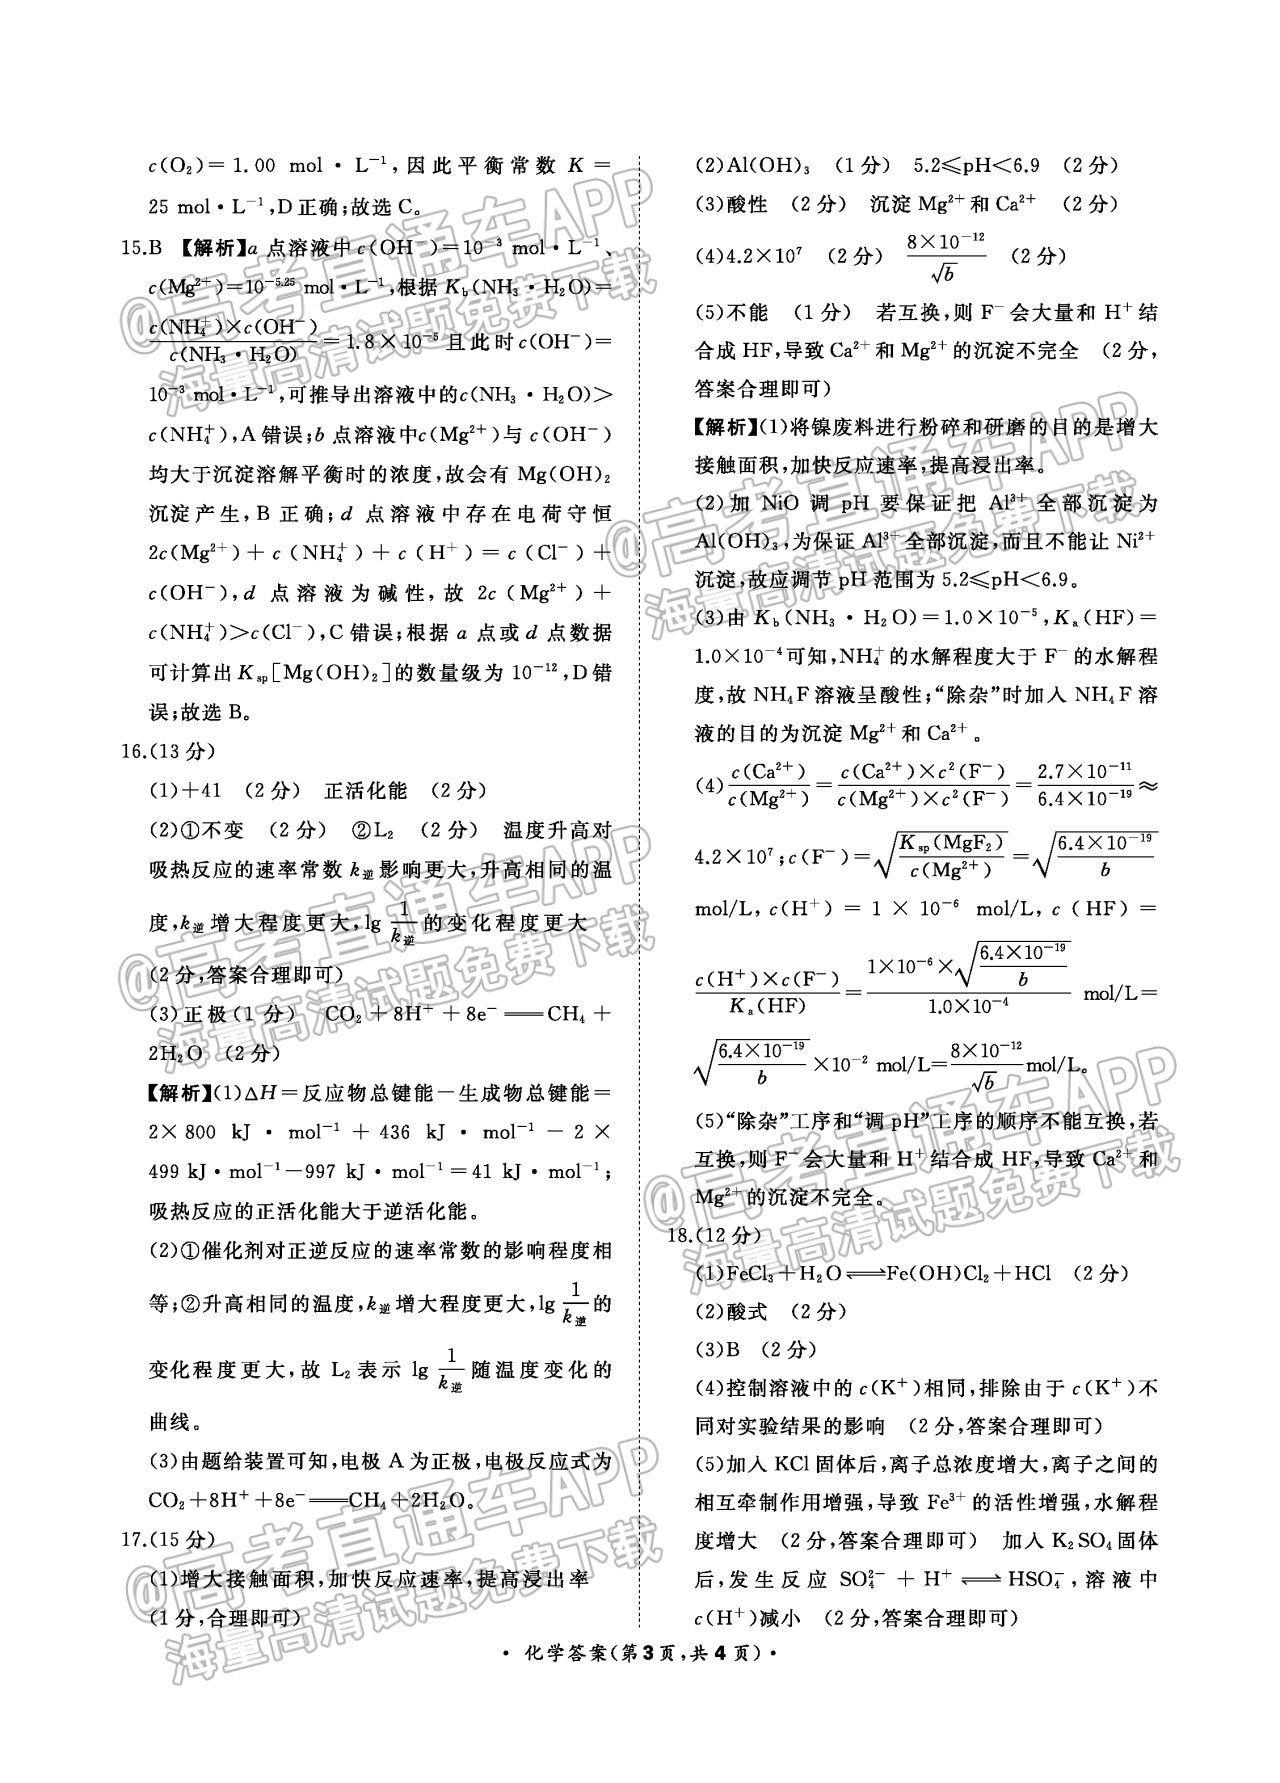 c(O₂)=1.00 mol·L⁻¹,因此平衡常数 K=
25 mol·L⁻¹,D正确;故选C。
15.B 【解析】a 点溶液中 c(OH⁻)=10⁻³ mol·L⁻¹、
c(Mg²⁺)=10⁻⁵·²⁵ mol·L⁻¹,根据 K_b(NH₃·H₂O)=
\frac{c(NH₄⁺)×c(OH⁻)}{c(NH₃·H₂O)}=1.8×10⁻⁵且此时c(OH⁻)=
10⁻³ mol·L⁻¹,可推导出溶液中的c(NH₃·H₂O)>
c(NH₄⁺),A错误;b 点溶液中c(Mg²⁺)与 c(OH⁻)
均大于沉淀溶解平衡时的浓度,故会有 Mg(OH)₂
沉淀产生,B 正确;d 点溶液中存在电荷守恒
2c(Mg²⁺)+c(NH₄⁺)+c(H⁺)=c(Cl⁻)+
c(OH⁻),d 点溶液为碱性,故 2c(Mg²⁺)+
c(NH₄⁺)>c(Cl⁻),C错误;根据 a 点或 d 点数据
可计算出 K_sp[Mg(OH)₂]的数量级为 10⁻¹²,D错
误;故选 B。
16.(13 分)
(1)+41 (2 分) 正活化能 (2 分)
(2)①不变 (2 分) ②L₂ (2 分) 温度升高对
吸热反应的速率常数 k逆影响更大,升高相同的温
度,k逆增大程度更大,lg \frac{1}{k逆}的变化程度更大
(2 分,答案合理即可)
(3)正极(1 分) CO₂+8H⁺+8e⁻══CH₄+
2H₂O (2 分)
【解析】(1)△H=反应物总键能-生成物总键能=
2×800 kJ·mol⁻¹+436 kJ·mol⁻¹-2×
499 kJ·mol⁻¹-997 kJ·mol⁻¹=41 kJ·mol⁻¹;
吸热反应的正活化能大于逆活化能。
(2)①催化剂对正逆反应的速率常数的影响程度相
等;②升高相同的温度,k逆增大程度更大,lg \frac{1}{k逆}的
变化程度更大,故 L₂ 表示 lg \frac{1}{k逆}随温度变化的
曲线。
(3)由题给装置可知,电极 A 为正极,电极反应式为
CO₂+8H⁺+8e⁻══CH₄+2H₂O。
17.(15 分)
(1)增大接触面积,加快反应速率,提高浸出率
(1 分,合理即可)
(2)Al(OH)₃ (1 分) 5.2⩽pH<6.9 (2 分)
(3)酸性 (2 分) 沉淀 Mg²⁺和 Ca²⁺ (2 分)
(4)4.2×10⁷ (2 分) \frac{8×10⁻¹²}{\sqrt{b}} (2 分)
(5)不能 (1 分) 若互换,则 F⁻会大量和 H⁺结
合成 HF,导致 Ca²⁺和 Mg²⁺的沉淀不完全 (2 分,
答案合理即可)
【解析】(1)将镍废料进行粉碎和研磨的目的是增大
接触面积,加快反应速率,提高浸出率。
(2)加 NiO 调 pH 要保证把 Al³⁺ 全部沉淀为
Al(OH)₃,为保证 Al³⁺全部沉淀,而且不能让 Ni²⁺
沉淀,故应调节 pH 范围为 5.2⩽pH<6.9。
(3)由 K_b(NH₃·H₂O)=1.0×10⁻⁵,K_a(HF)=
1.0×10⁻⁴可知,NH₄⁺的水解程度大于 F⁻的水解程
度,故 NH₄F 溶液呈酸性;“除杂”时加入 NH₄F 溶
液的目的为沉淀 Mg²⁺和 Ca²⁺。
(4)\frac{c(Ca²⁺)}{c(Mg²⁺)}=\frac{c(Ca²⁺)×c²(F⁻)}{c(Mg²⁺)×c²(F⁻)}=\frac{2.7×10⁻¹¹}{6.4×10⁻¹⁹}≈
4.2×10⁷;c(F⁻)=\sqrt{\frac{K_sp(MgF₂)}{c(Mg²⁺)}}=\sqrt{\frac{6.4×10⁻¹⁹}{b}}
mol/L,c(H⁺)=1×10⁻⁶ mol/L,c(HF)=
\frac{c(H⁺)×c(F⁻)}{K_a(HF)}=\frac{1×10⁻⁶×\sqrt{\frac{6.4×10⁻¹⁹}{b}}}{1.0×10⁻⁴} mol/L=
\sqrt{\frac{6.4×10⁻¹⁹}{b}}×10⁻² mol/L=\frac{8×10⁻¹²}{\sqrt{b}}mol/L。
(5)“除杂”工序和“调 pH”工序的顺序不能互换,若
互换,则 F⁻会大量和 H⁺结合成 HF,导致 Ca²⁺和
Mg²⁺的沉淀不完全。
18.(12 分)
(1)FeCl₃+H₂O⇌Fe(OH)Cl₂+HCl (2 分)
(2)酸式 (2 分)
(3)B (2 分)
(4)控制溶液中的 c(K⁺)相同,排除由于 c(K⁺)不
同对实验结果的影响 (2 分,答案合理即可)
(5)加入 KCl 固体后,离子总浓度增大,离子之间的
相互牵制作用增强,导致 Fe³⁺的活性增强,水解程
度增大 (2 分,答案合理即可) 加入 K₂SO₄固体
后,发生反应 SO₄²⁻+H⁺⇌HSO₄⁻,溶液中
c(H⁺)减小 (2 分,答案合理即可)
·化学答案(第3页,共4页)·
@高考直通车APP
海量高清试题免费下载
@高考直通车APP
海量高清试题免费下载
@高考直通车APP
海量高清试题免费下载
@高考直通车APP
海量高清试题免费下载
@高考直通车APP
海量高清试题免费下载